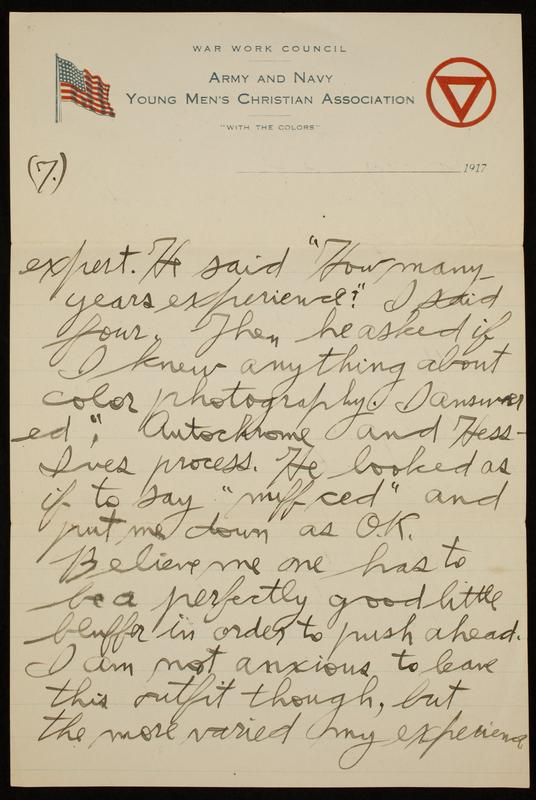 WAR WORK COUNCIL
ARMY AND NAVY
YOUNG MEN'S CHRISTIAN ASSOCIATION
"WITH THE COLORS"
1917
(7.)
expert. He said "How many
years experience?" I said
four. Then he asked if
I knew anything about
color photography. I answer
ed, "Autochrome and Hess-
Ives process. He looked as
if to say " " and
put me down as O.K.
Believe me one has to
be a perfectly good little
bluffer in order to push ahead.
I am not anxious to leave
this outfit though, but
the more varied my experience